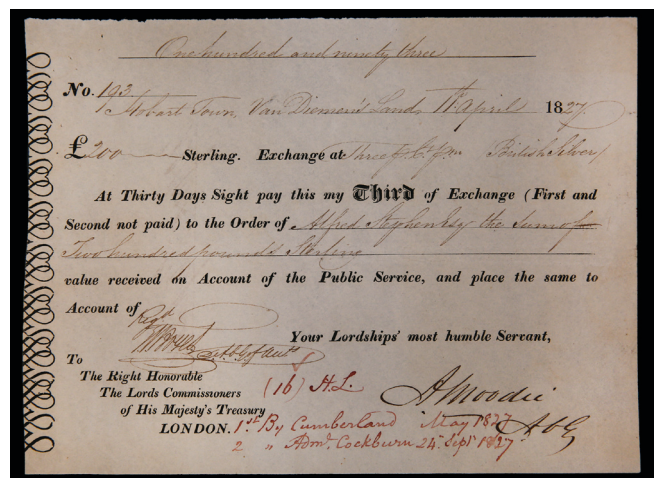 One hundred and ninety three
No. 193
Hobart Town, Van Diemen's Land, 11th April 1827.
£200 Sterling. Exchange at Three British Silver
At Thirty Days Sight pay this my Third of Exchange (First and
Second not paid) to the Order of Alfred Stephen Esq the Sum of
Two hundred pounds Sterling
value received on Account of the Public Service, and place the same to
Account of
Regd
Your Lordships' most humble Servant,
To
The Right Honorable
The Lords Commissioners
of His Majesty's Treasury
LONDON.
(16) H.L.
A Moodie
A C G
1.st By Cumberland May 1827
2 " Adml. Cockburn 24 Sept 1827